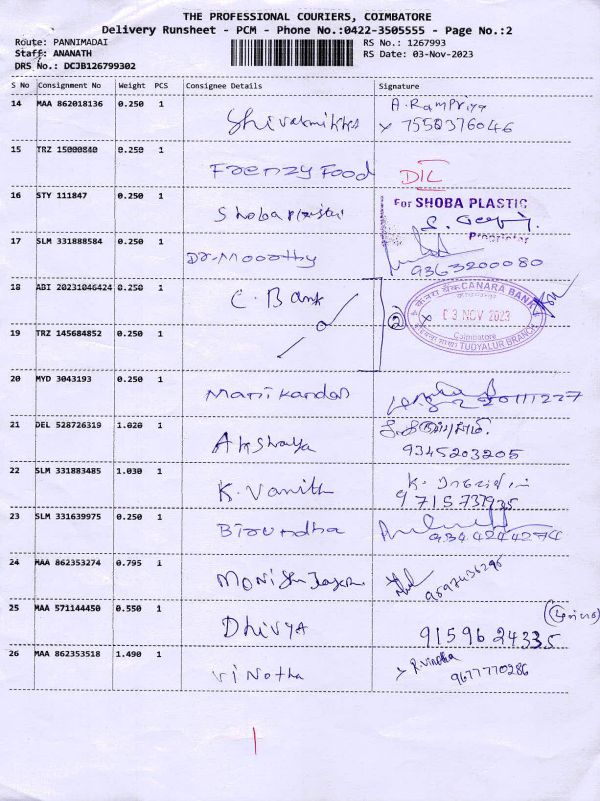 THE PROFESSIONAL COURIERS, COIMBATORE
Delivery Runsheet - PCM - Phone No.:0422-3505555 - Page No.:2
Route: PANNIMADAI
RS No.: 1267993
Staff: ANANATH
RS Date: 03-Nov-2023
DRS No.: DCJB126799302
S No Consignment No Weight PCS Consignee Details Signature
14 MAA 862018136 0.250 1 A. RamPriya
x 7550376046
15 TRZ 15000840 0.250 1 Frenzy Food DIL
16 STY 111847 0.250 1 Shoba For SHOBA PLASTIC
Proprietor
17 SLM 331888584 0.250 1 Dr-Moorthy 9363200080
18 ABI 20231046424 0.250 1 C. Bank
CANARA BANK
② 03 NOV 2023
Coimbatore
TUDYALUR BRANCH
19 TRZ 145684852 0.250 1
20 MYD 3043193 0.250 1 Manikandan
21 DEL 528726319 1.020 1 Akshaya
9345203205
22 SLM 331883485 1.030 1 K. Vanith K.
9715737935
23 SLM 331639975 0.250 1 Birundha 9344244274
24 MAA 862353274 0.795 1 9597436295
25 MAA 571144450 0.550 1 Dhivya 9159624335
26 MAA 862353518 1.490 1 Vinotha x R.Vinotha
9677770286